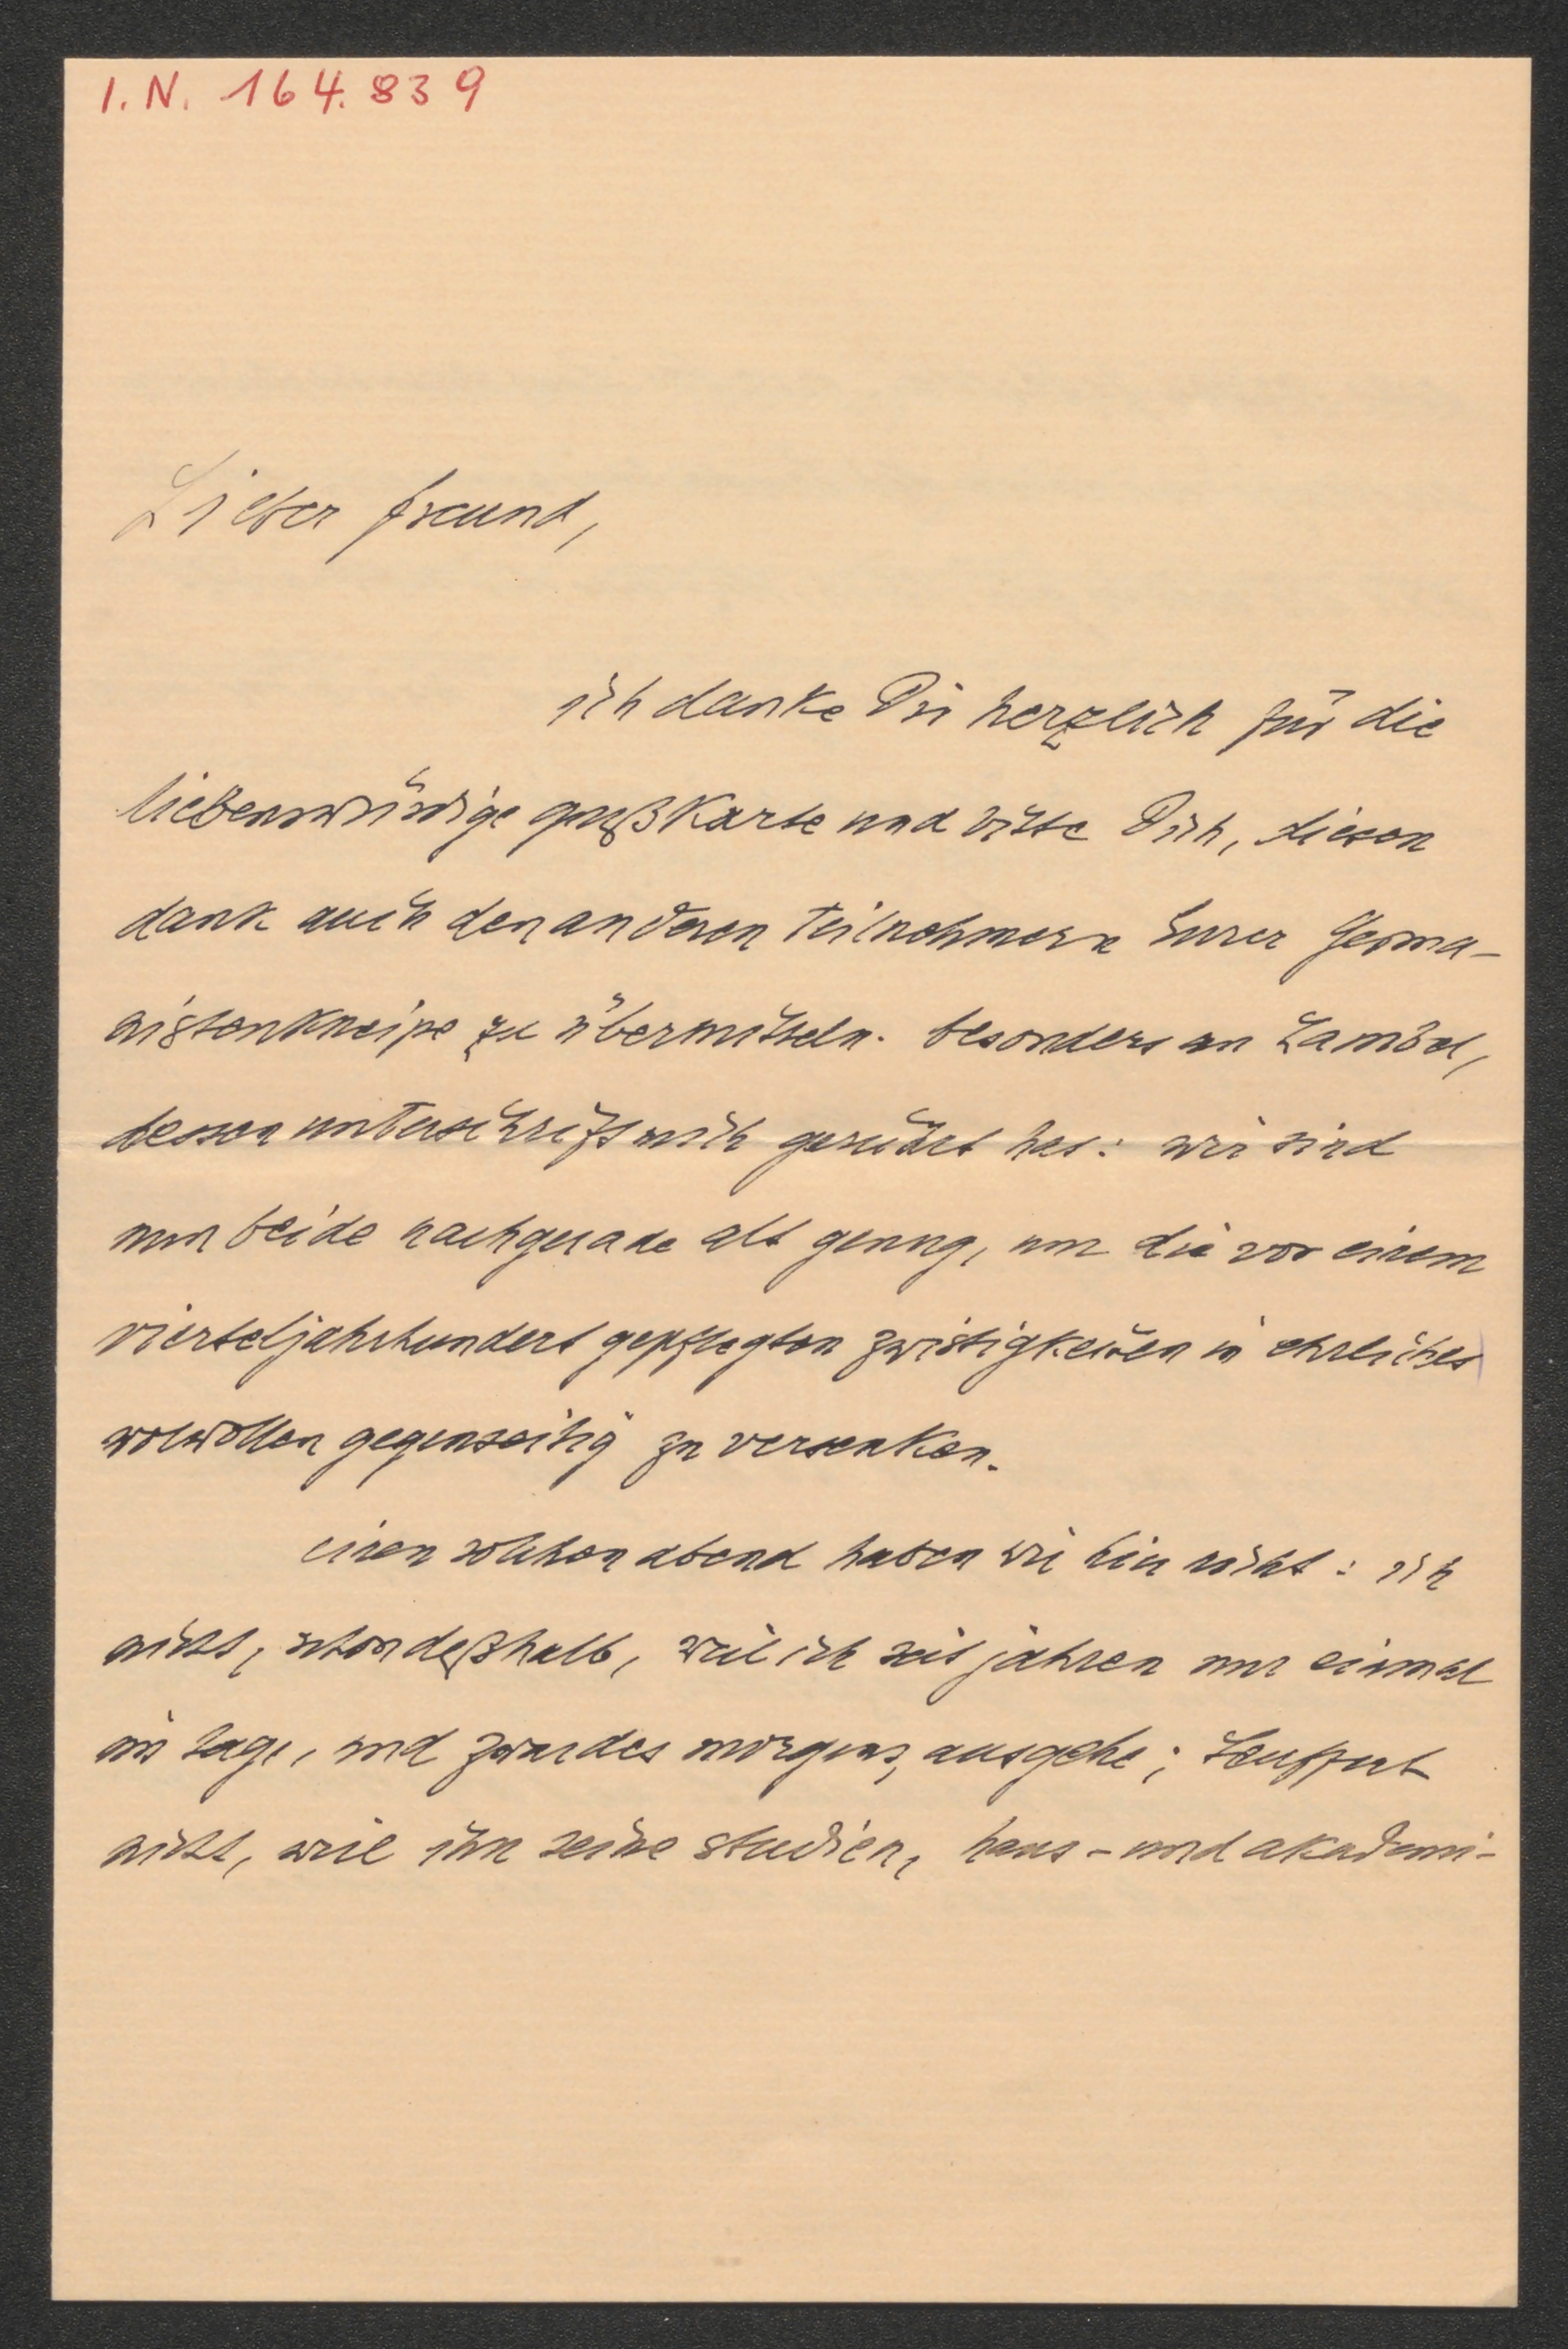 I. N. 164.839
Lieber freund,
ich danke Dir herzlich für die
liebenswürdige grußkarte und bitte Dich, diesen
dank auch den anderen teilnehmern Eurer Germa-
nistenkneipe zu übermitteln. besonders an Lambel,
dessen unterschrift mich gerührt hat: wir sind
nun beide nachgerade alt genug, um die vor einem
vierteljahrhundert gepflegten zwistigkeiten in ehrliches
wolwollen gegenseitig zu versenken.
einen solchen abend haben wir hier nicht: ich
nicht, schon deßhalb, weil ich seit jahren nur einmal
im tage, und zwar des morgens, ausgehe; Seuffert
nicht, weil ihn seine studien, haus- und akademi-